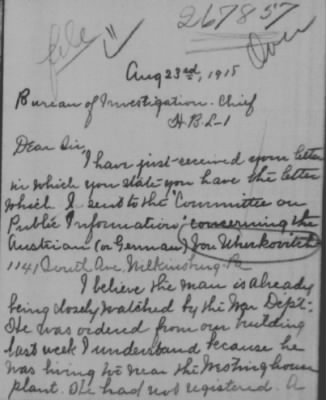 267857
file
Over
Aug 23rd, 1918
Bureau of Investigation - Chief
H B L-1
Dear Sir,
I have just received your letter
in which you state you have the letter
which I sent to the "Committee on
Public Information," concerning the
Austrian (or German) Von
1141 South Ave. Wilkinsburg Pa
I believe the man is already
being closely watched by the War Dept:
He was ordered from our building
last week I understand because he
was living too near the Westinghouse
plant. He had not registered. A